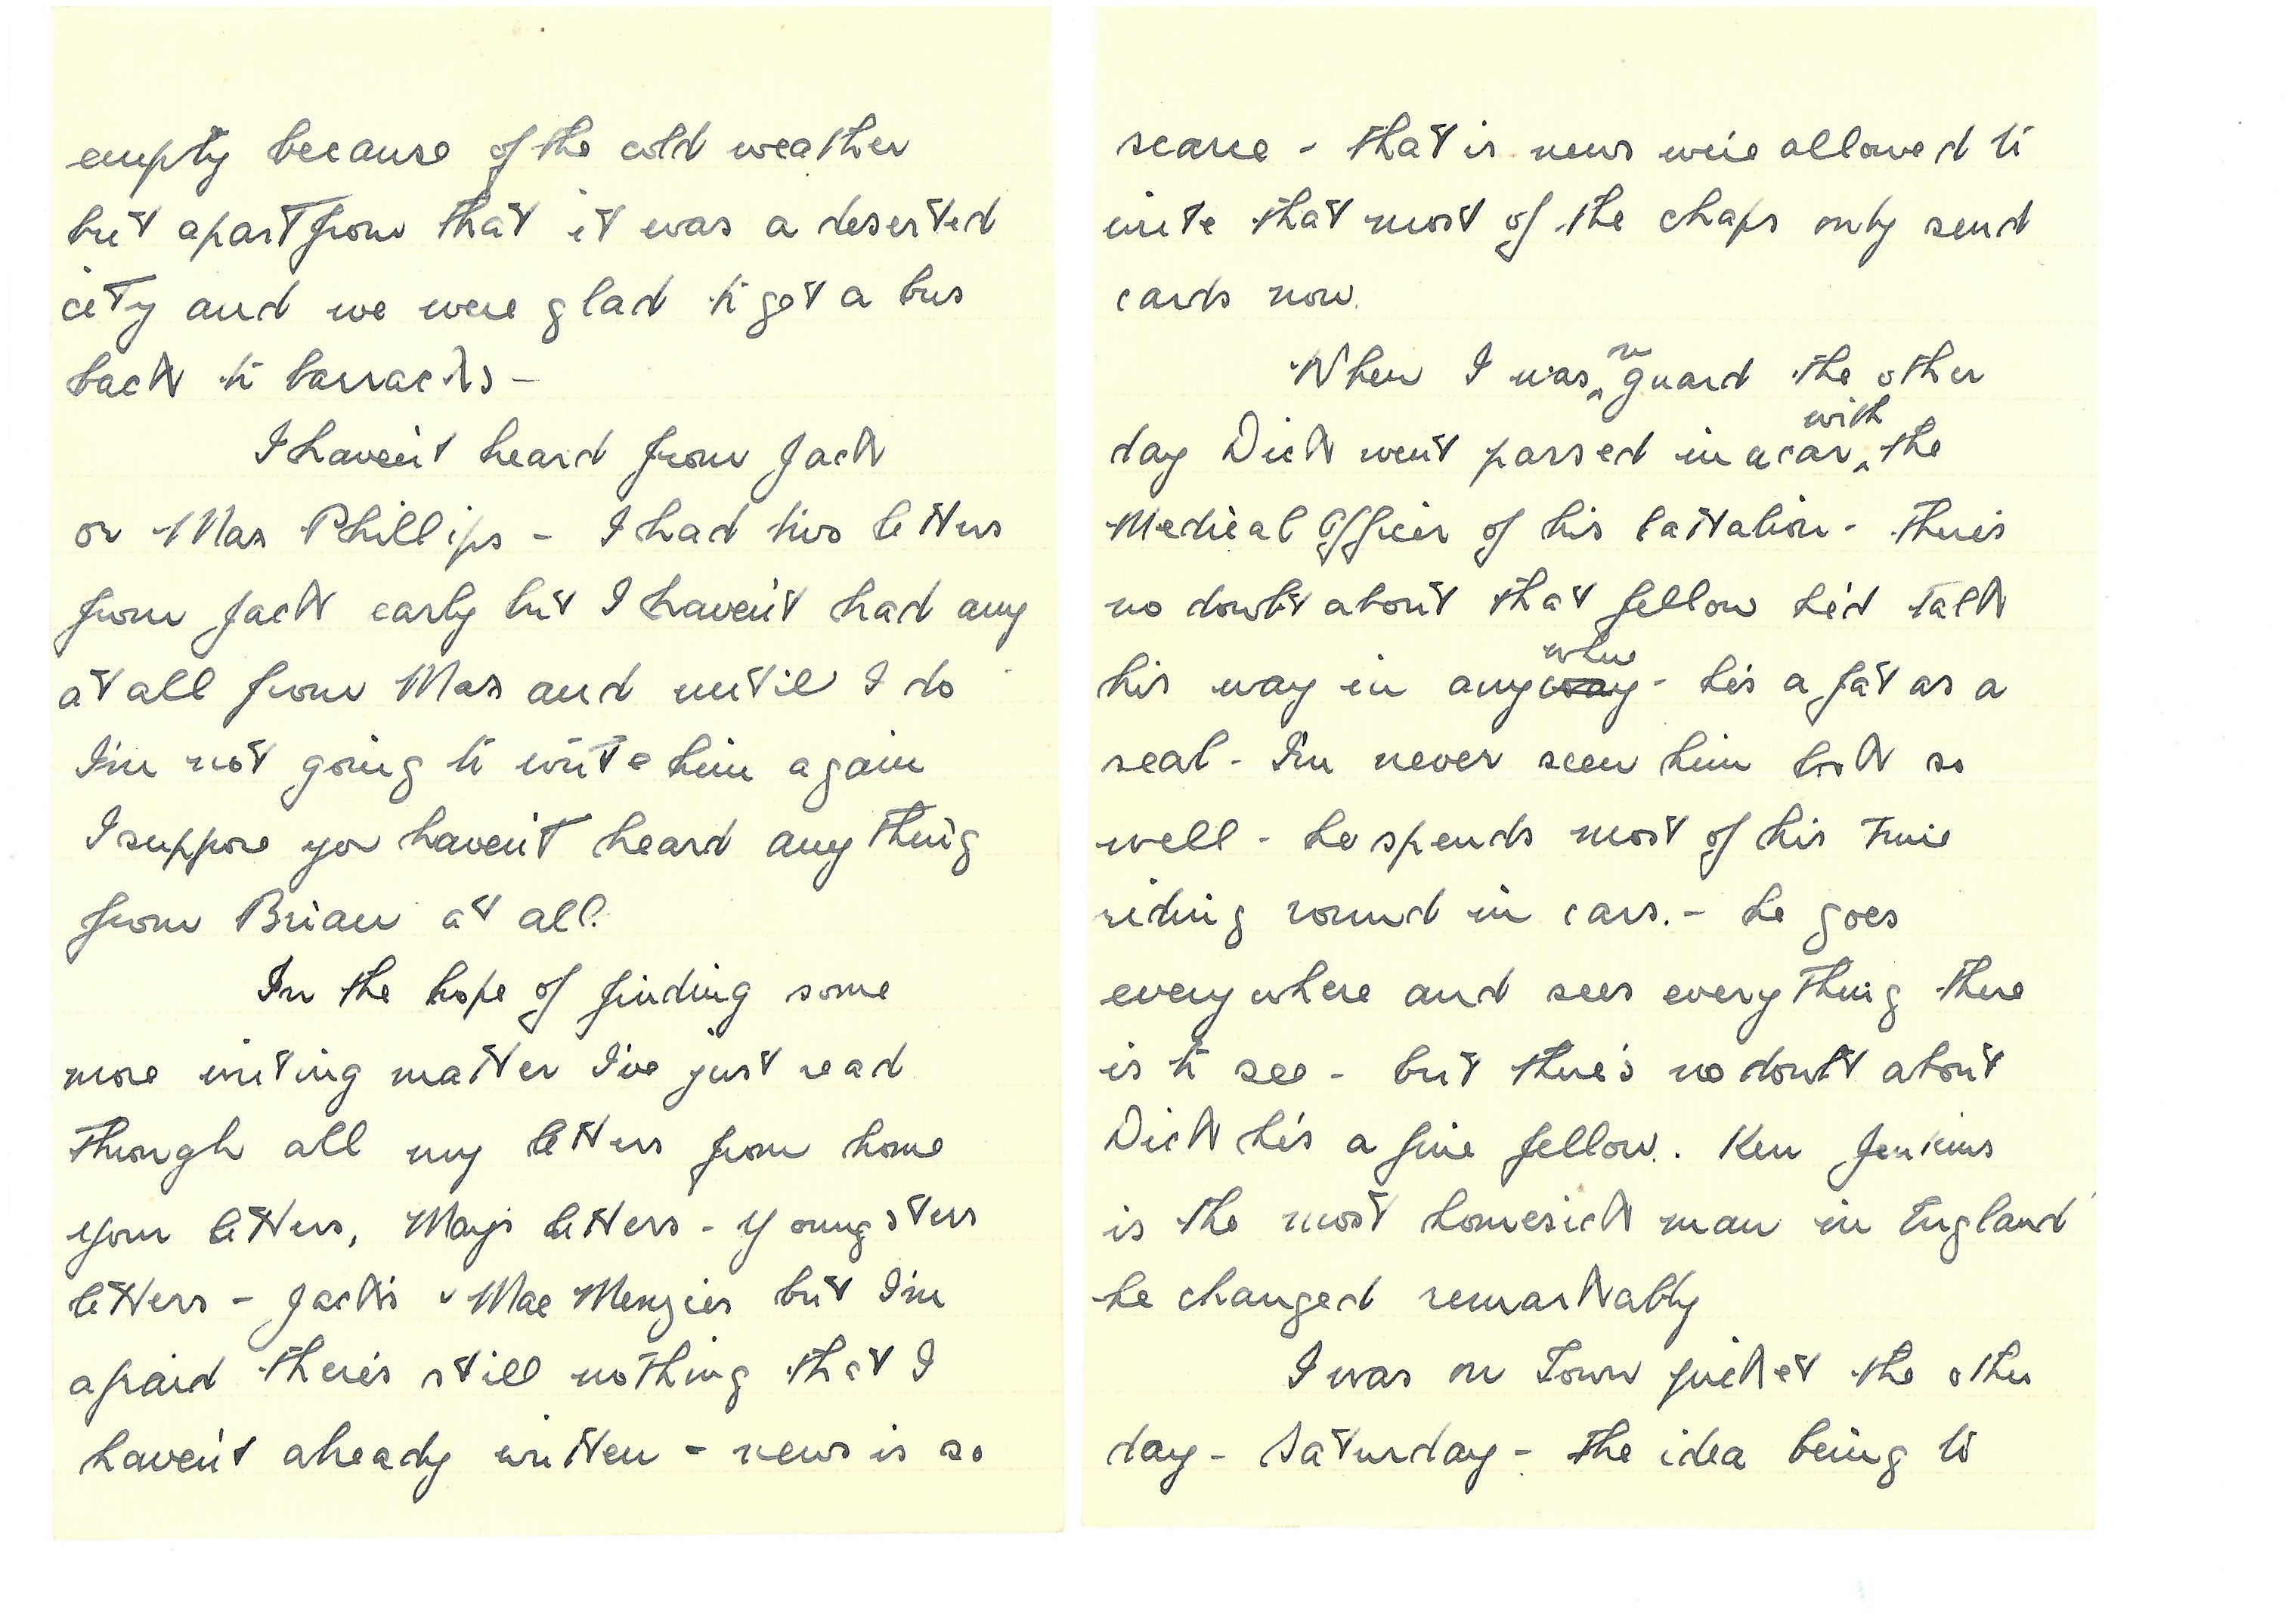 empty because of the cold weather
but apart from that it was a deserted
city and we were glad to get a bus
back to barracks -
I haven't heard from Jack
or Max Phillips - I had two letters
from Jack early but I haven't had any
at all from Max and until I do
I'm not going to write him again
I suppose you haven't heard anything
from Brian at all.
In the hope of finding some
more writing matter I've just read
through all my letters from home
your letters, May's letters - youngsters
letters - Jack's & Mae Menzies but I'm
afraid there's still nothing that I
haven't already written - news is so
scarce - that is news we're allowed to
write that most of the chaps only send
cards now.
When I was on guard the other
day Dick went passed in a car with the
Medical Officer of his battalion - there's
no doubt about that fellow he'd talk
his way in anywhere - he's a fat as a
seal - I'm never seen him look so
well - he spends most of his time
riding round in cars. - he goes
everywhere and sees everything there
is to see - but there's no doubt about
Dick he's a fine fellow. Ken Jenkins
is the most homesick man in England
he changed remarkably
I was on Town picket the other
day - Saturday - the idea being to